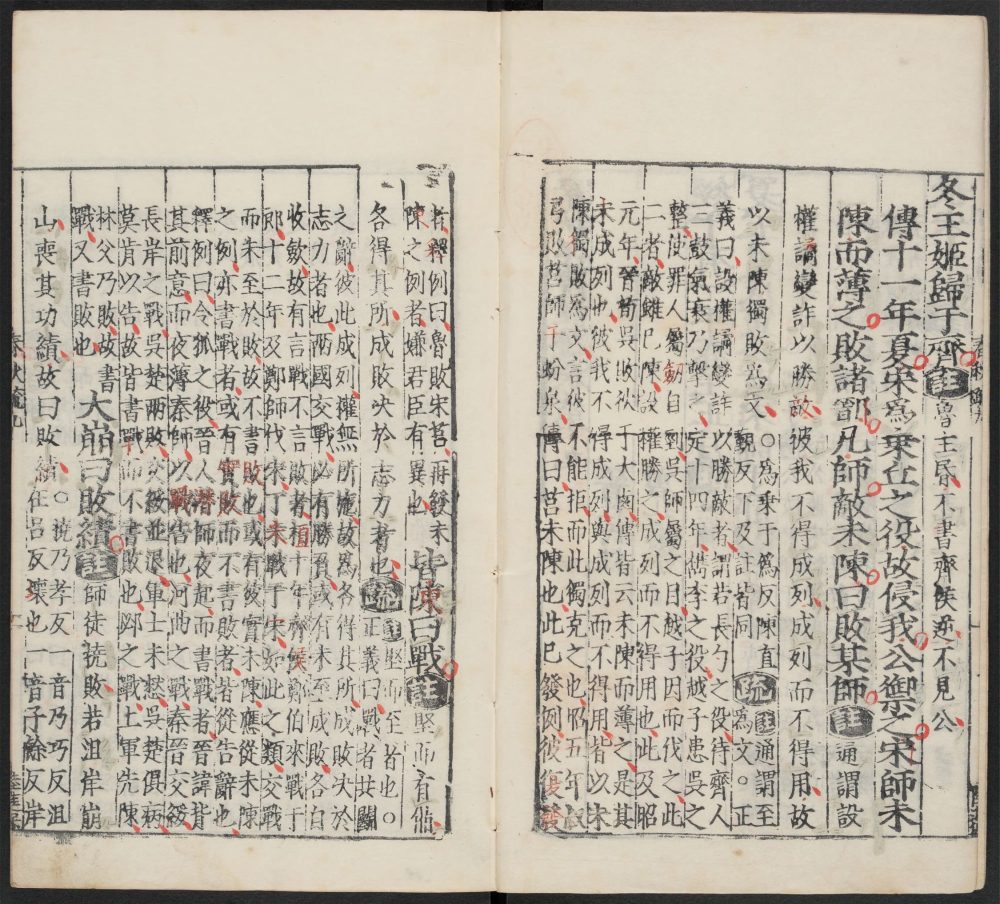 冬王姬歸于齊註魯主昏不書齊侯逆不見公
傳十一年夏宋爲乗丘之役故侵我公禦之宋師未
陳而薄之敗諸鄑凡師敵未陳曰敗某師註通謂設
權譎變詐以勝敵彼我不得成列成列而不得用故
以未陳獨敗爲文○爲乗于爲反陳直
覲反下及註皆同疏註通謂至
爲文○正
義曰設權譎變詐以勝敵者謂若長勺之役待齊人
三鼓氣衰乃擊之定十四年檇李之役越子患呉之
整使罪人屬劔自剄呉師屬之目越子因而伐之此
二者敵雖巳陳設權勝之成列而不得用也此及昭
元年晉荀呉敗狄于大鹵傳皆云未陳而薄之是其
未成列也彼我不得成列與成列而不得用皆以未
陳獨敗爲文言彼不能拒而此獨克之也昭五年叔
弓敗莒師于蚡泉傳曰莒未陳也此巳發例彼復發
者釋例曰魯敗宋莒再發未
陳之例者嫌君臣有異也皆陳曰戰註堅而有備
各得其所成敗决於志力者也疏註堅而至者也○
正義曰戰者共鬬
之辭彼此成列權無所施故爲各得其所成敗决於
志力者也兩國交戰必有勝負或有未至成敗各自
收斂故有言戰不言敗者桓十年齊侯鄭伯來戰于
郎十二年及鄭師伐宋丁未戰于宋如此之類交戰
而未至於敗故不書敗也或有彼實未陳應從未陳
之例亦書戰者或有實敗而不書敗者者從告辭也
釋例曰令狐之役晉人潛師夜起而書戰者晉諱背
其前意而夜薄秦師以戰告也河曲之戰秦晉交綏
長岸之戰呉楚兩敗交綏並退軍士未憖呉楚俱病
莫肯以告故皆書戰而不書敗也邲之戰上軍先陳
林父乃敗故書
戰又書敗也大崩曰敗績註師徒撓敗若沮岸崩
山喪其功績故曰敗績○撓乃孝反一音乃巧反沮
在呂反壞也一音子餘反岸